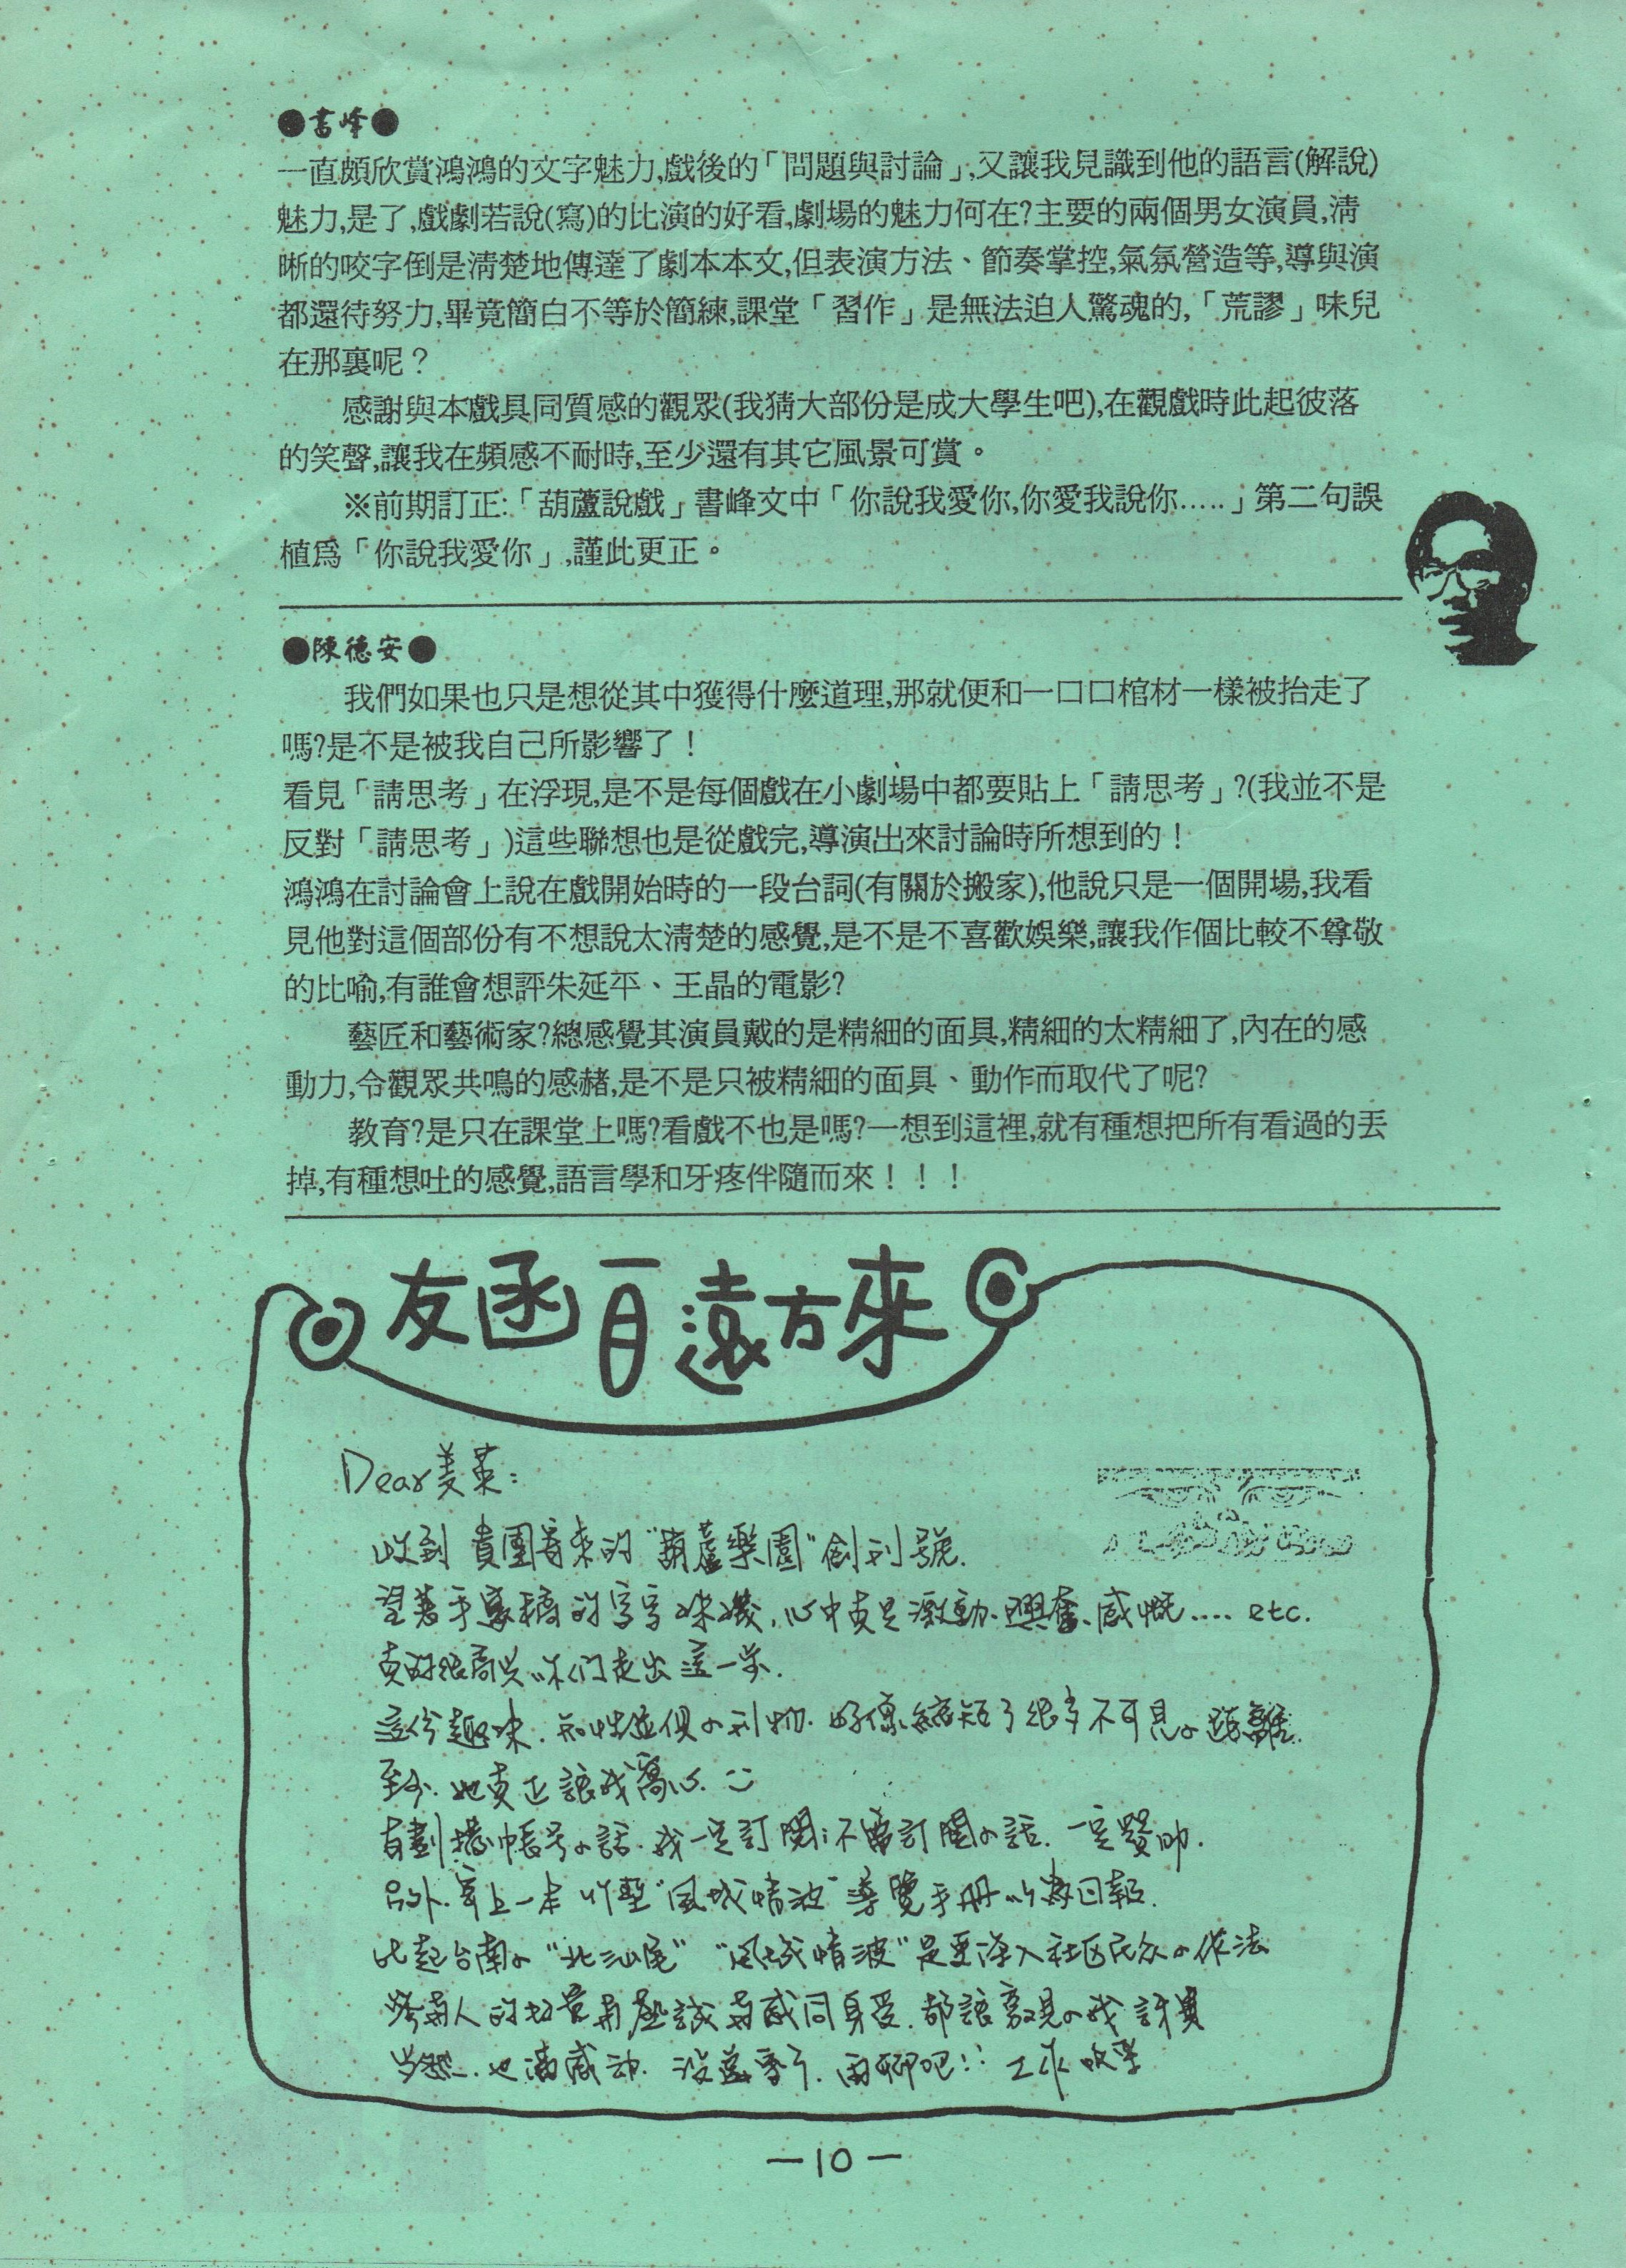 ●書峰●
一直頗欣賞鴻鴻的文字魅力,戲後的「問題與討論」,又讓我見識到他的語言(解說)
魅力,是了,戲劇若說(寫)的比演的好看,劇場的魅力何在?主要的兩個男女演員,清
晰的咬字倒是清楚地傳達了劇本本文,但表演方法、節奏掌控,氣氛營造等,導與演
都還待努力,畢竟簡白不等於簡練,課堂「習作」是無法迫人驚魂的,「荒謬」味兒
在那裏呢？
感謝與本戲具同質感的觀眾(我猜大部份是成大學生吧),在觀戲時此起彼落
的笑聲,讓我在頻感不耐時,至少還有其它風景可賞。
※前期訂正:「葫蘆說戲」書峰文中「你說我愛你,你愛我說你.....」第二句誤
植爲「你說我愛你」,謹此更正。
●陳德安●
我們如果也只是想從其中獲得什麼道理,那就便和一口口棺材一樣被抬走了
嗎?是不是被我自己所影響了！
看見「請思考」在浮現,是不是每個戲在小劇場中都要貼上「請思考」?(我並不是
反對「請思考」)這些聯想也是從戲完,導演出來討論時所想到的！
鴻鴻在討論會上說在戲開始時的一段台詞(有關於搬家),他說只是一個開場,我看
見他對這個部份有不想說太清楚的感覺,是不是不喜歡娛樂,讓我作個比較不尊敬
的比喻,有誰會想評朱延平、王晶的電影?
藝匠和藝術家?總感覺其演員戴的是精細的面具,精細的太精細了,內在的感
動力,令觀眾共鳴的感赭,是不是只被精細的面具、動作而取代了呢?
教育?是只在課堂上嗎?看戲不也是嗎?一想到這裡,就有種想把所有看過的丟
掉,有種想吐的感覺,語言學和牙疼伴隨而來！！！
友函自遠方來
Dear美英:
收到 貴團寄來的"葫蘆樂園"創刊號.
望著手寫稿的字字珠璣,心中真是激動、興奮、感慨.... etc.
真的很高兴你们走出這一步.
這份趣味.知性並俱的刊物.好像縮短了很多不可見的距離.
至少.她真正讓我窩心.
有劃撥帳号的話.我一定訂閱;不需訂閱的話.一定贊助.
另外.寄上一本 "風城情波"導覽手冊以為回報.
比起台南的"北汕尾" "風城情波"是更深入社区民众的作法
感同身受.都讓
当然.也滿感动. 再聊吧!! 工作快樂
—10—